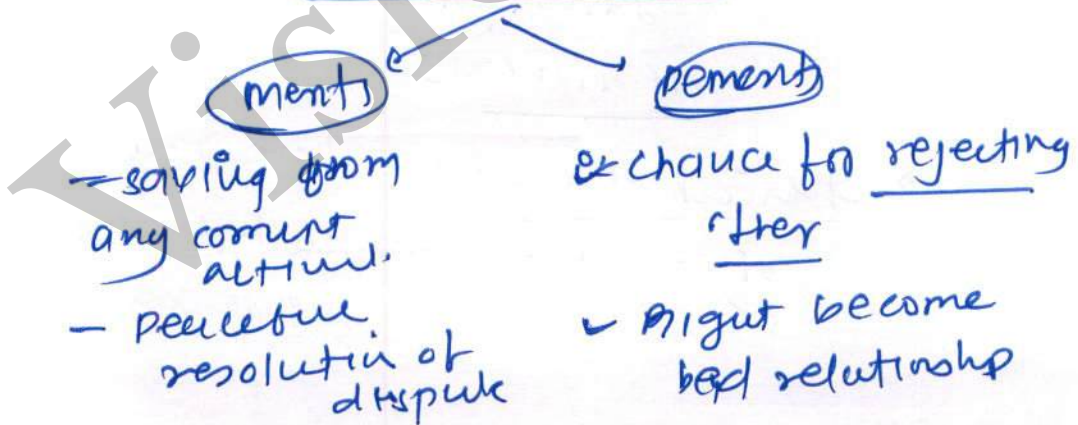 merits
- saving from
any corrupt
- Peaceful
resolution of
dispute
demerits
chance for rejecting
- Might become
bad relationship